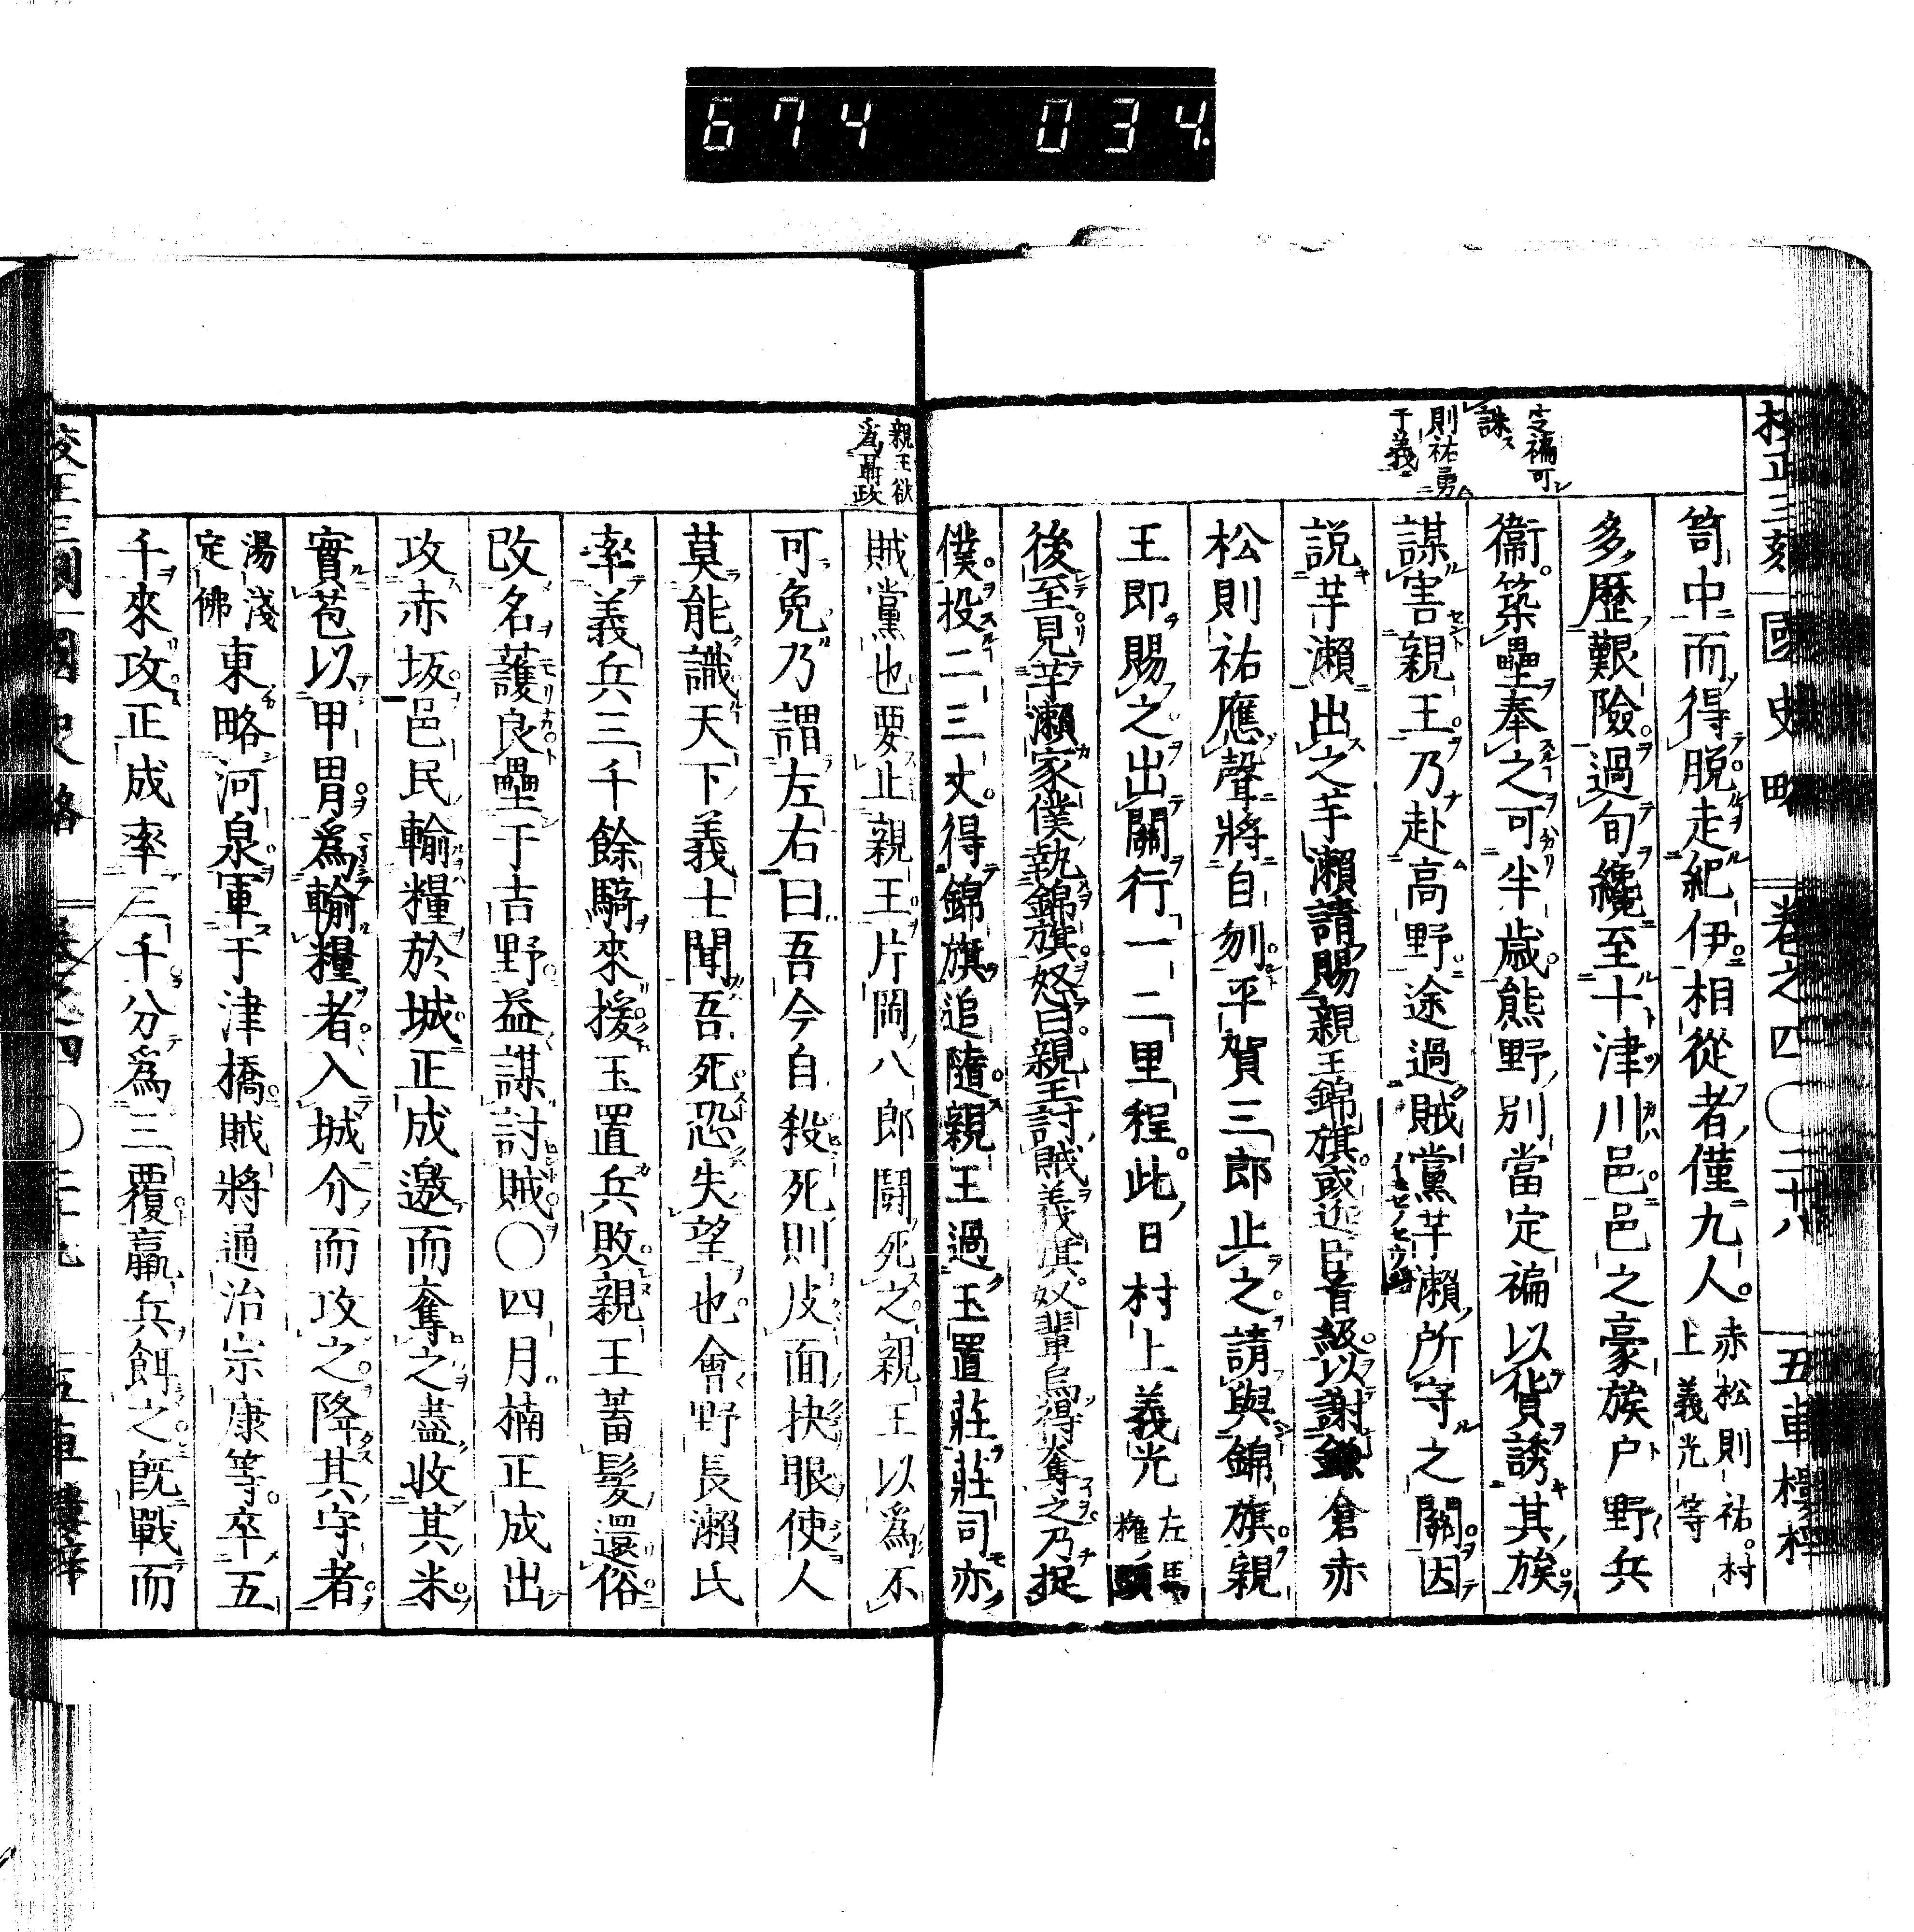 674 034.
校正三刻 國史略 卷之四 〇三十八 五車樓梓
定徧可
誅ス
則祐勇
于義
笥中而得脱走紀伊相從者僅九人。赤松則祐。村上義光等
多歷艱險過旬纔至十津川邑邑之豪族户野兵
衞。築壘奉之可半歳。熊野別當定徧以貨誘其族
謀害親王乃赴高野途過賊黨芋瀬所守之關因
説芋瀬出之芋瀬請賜親王錦旗或近臣首級以謝鎌倉赤
松則祐應聲將自刎平賀三郎止之請與錦旗親
王即賜之出關行一二里程。此日村上義光左馬權頭
後至見芋瀬家僕執錦旗怒曰親王討賊義旗奴輩烏得奪之乃捉
僕投二三丈。得錦旗追隨親王過玉置莊莊司亦
親王欲
爲聶政
賊黨也要止親王片岡八郎鬪死之親王以爲不
可免乃謂左右曰吾今自殺死則皮面抉眼使人
莫能識天下義士聞吾死恐失望也會野長瀬氏
率義兵三千餘騎來援玉置兵敗親王蓄髮還俗
改名護良壘于吉野益謀討賊〇四月楠正成出
攻赤坂邑民輸糧於城正成邀而奪之盡收其米
實苞以甲冑爲輸糧者入城介而攻之降其守者
湯淺定佛東略河泉軍于津橋賊將通治宗康等卒五
千來攻正成率三千分爲三覆羸兵餌之既戰而